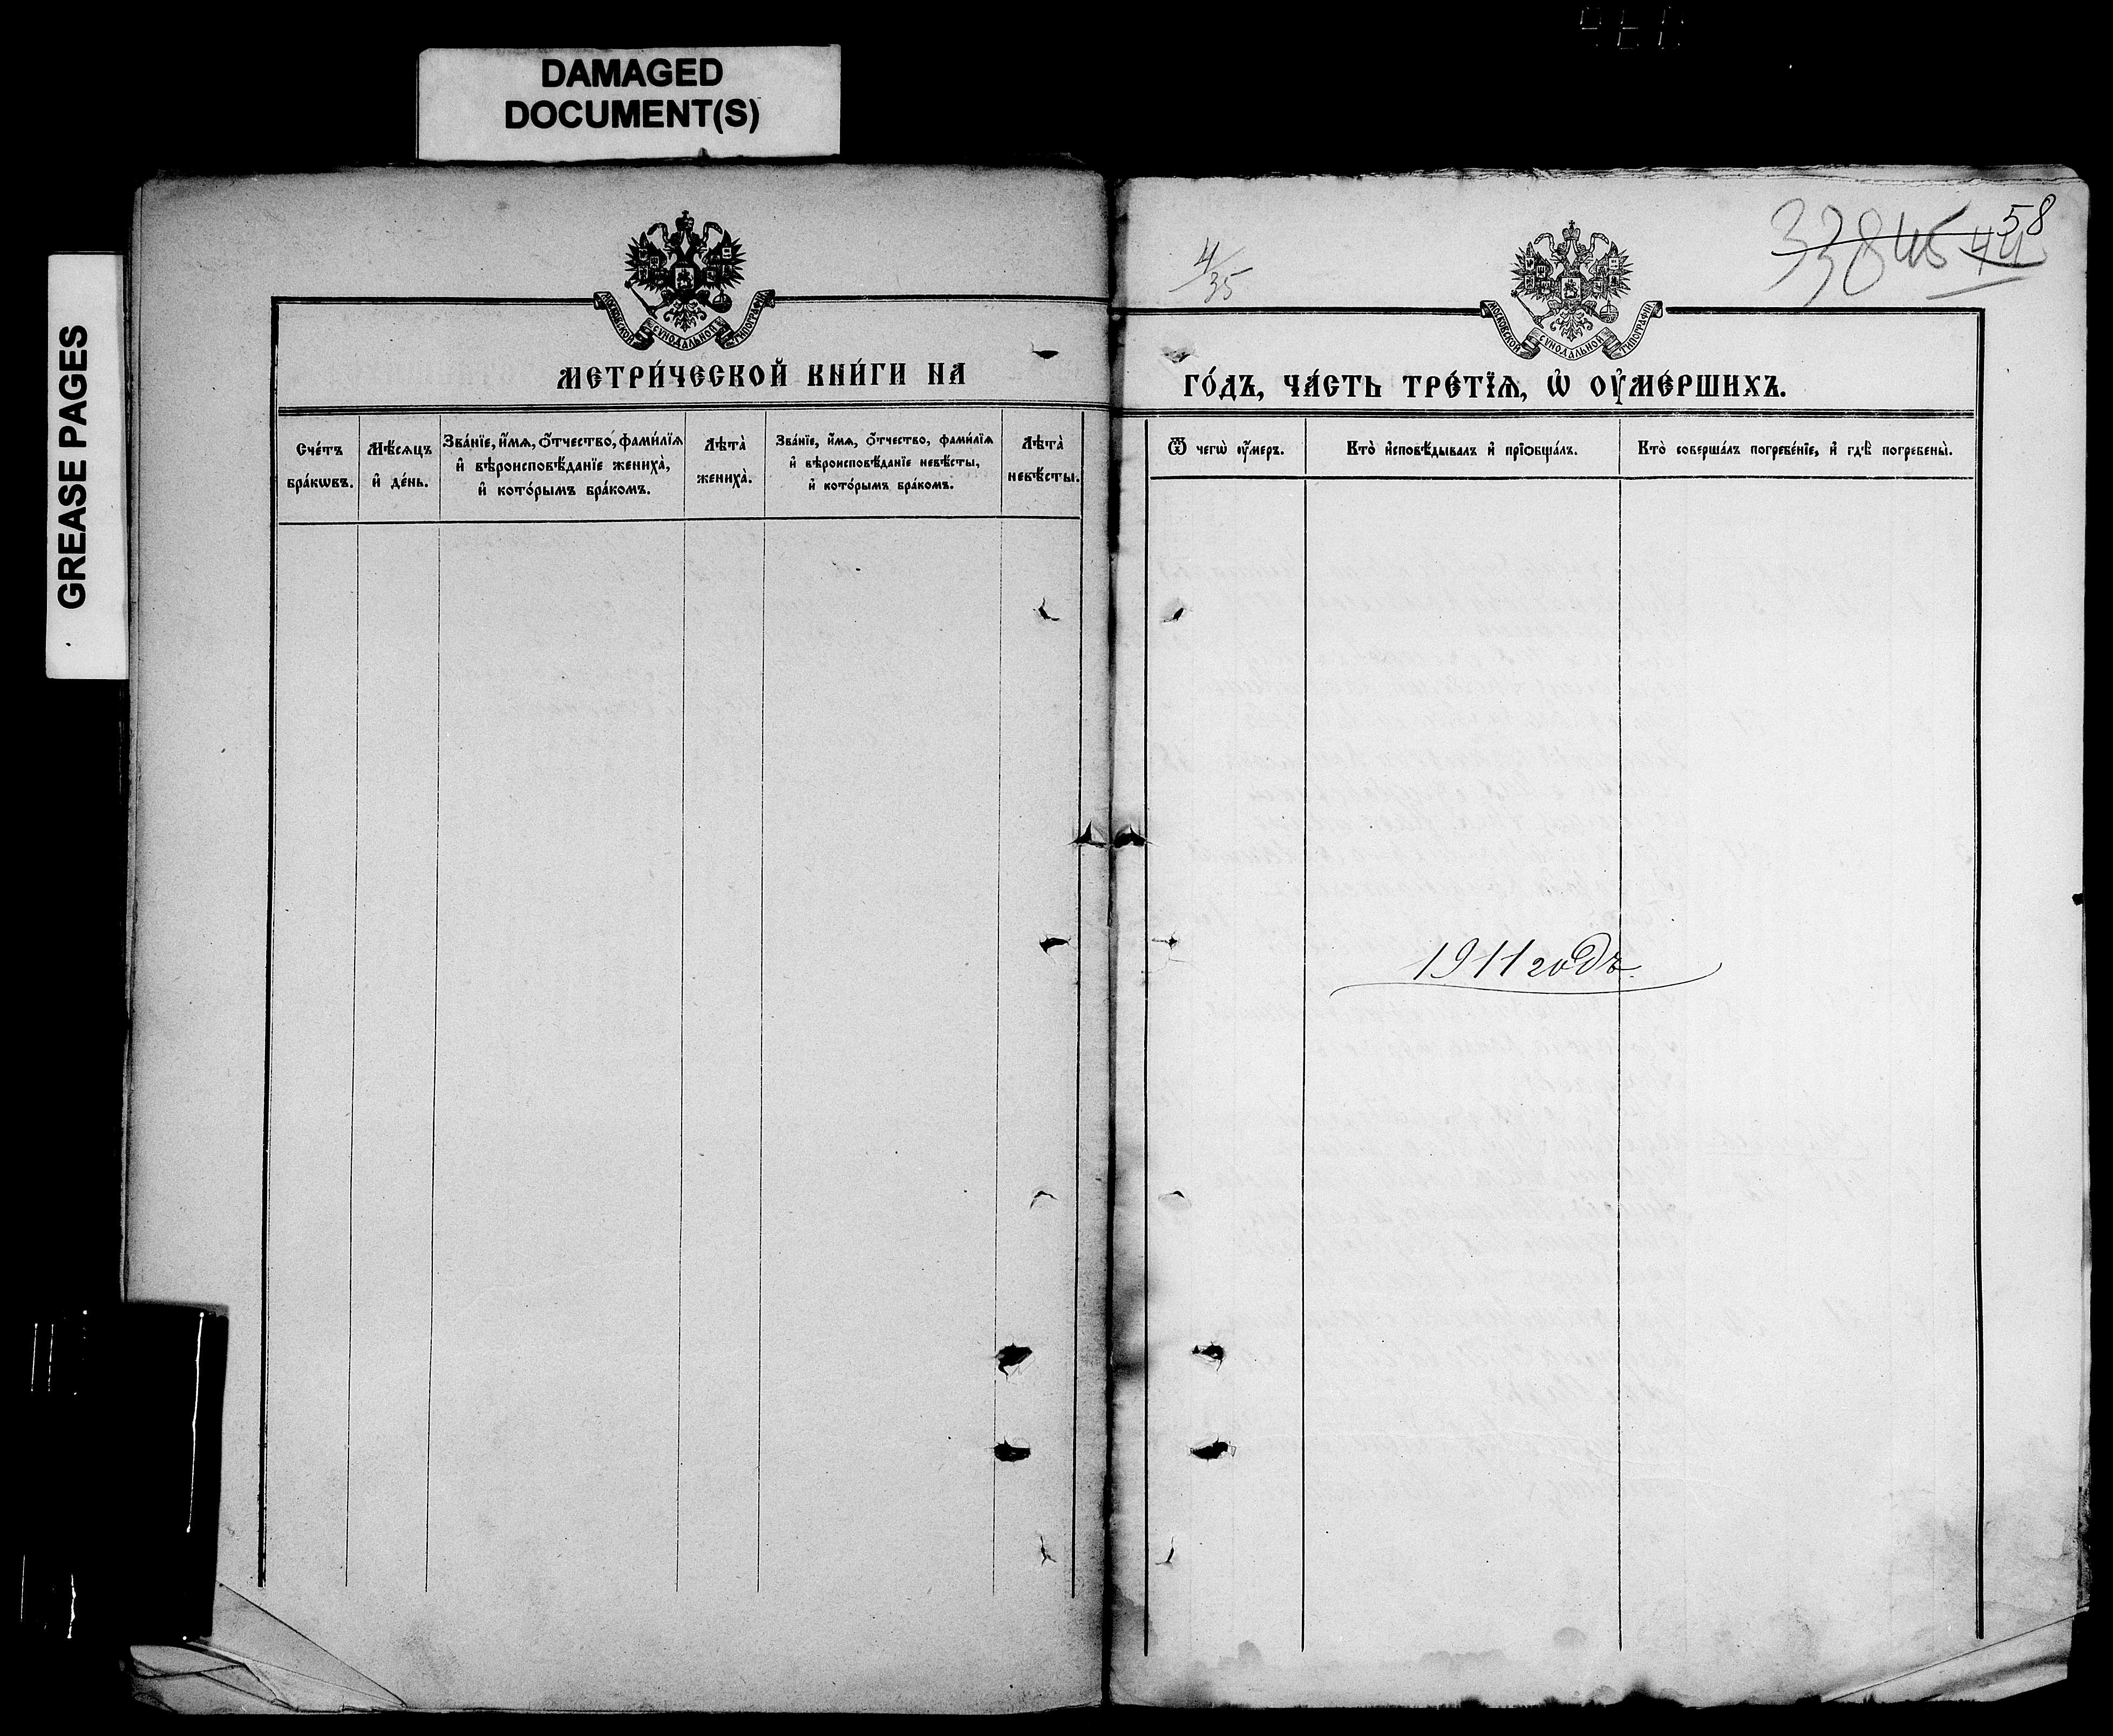 DAMAGED
DOCUMENT(S)
GREASE PAGES
МОСКОВСКОЙ СѴНОДАЛЬНОЙ ТИПОГРАФІИ
МЕТРИ́ЧЕСКОЙ КНИ́ГИ НА
Сче́тъ бра́кѡвъ.
Мѣ́сѧцъ и҆ де́нь.
Зва́нїе, и҆́мѧ, ѻ҆́тчество, фами́лїѧ
и҆ вѣроисповѣ́данїе жениха̀,
и҆ кото́рымъ бра́комъ.
Лѣта̀ жениха̀.
Зва́нїе, и҆́мѧ, ѻ҆́тчество, фами́лїѧ
и҆ вѣроисповѣ́данїе невѣ́сты,
и҆ кото́рымъ бра́комъ.
Лѣта̀ невѣ́сты.
4/35
58
45
44
МОСКОВСКОЙ СѴНОДАЛЬНОЙ ТИПОГРАФІИ
ГО́ДЪ, ЧА́СТЬ ТРЕ́ТЇѦ, Ѡ҆ ОУ҆МЕ́РШИХЪ.
Ѿ чегѡ̀ оу҆́меръ.
Кто̀ и҆сповѣ́дывалъ и҆ прїѻбща́лъ.
Кто̀ соверша́лъ погребе́нїе, и҆ гдѣ̀ погребены̀.
1911 годъ.